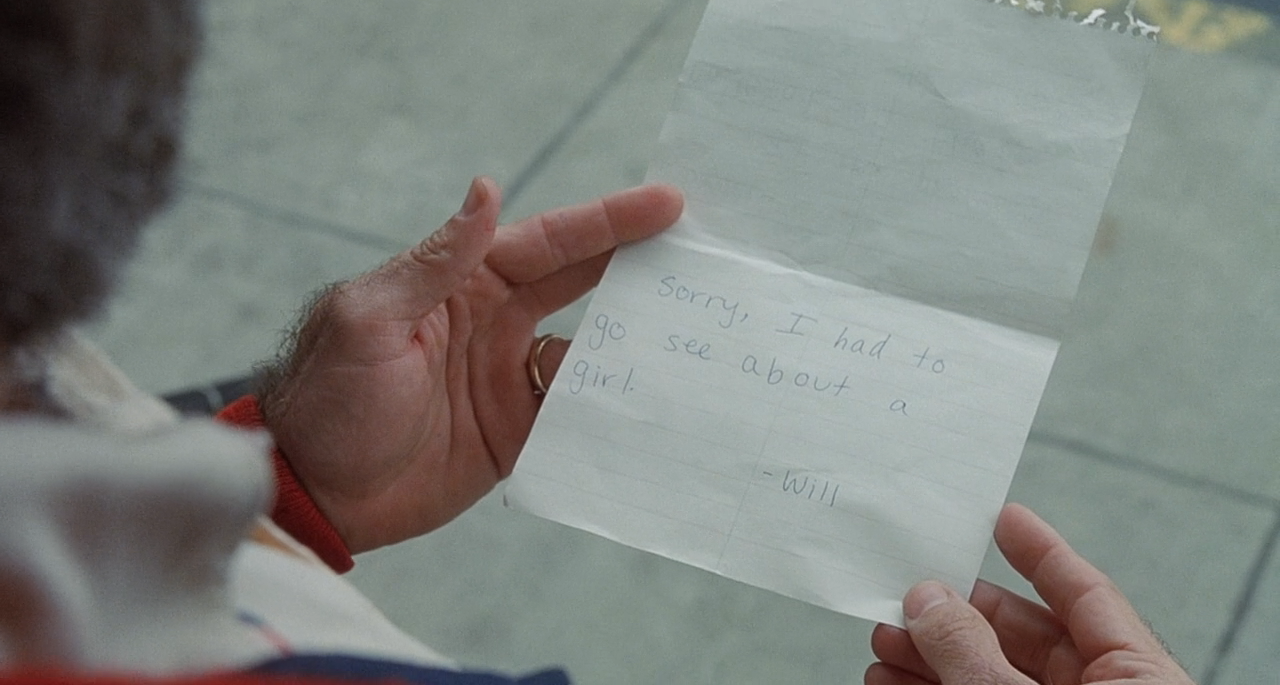 Sorry, I had to
go see about a
girl.
-Will